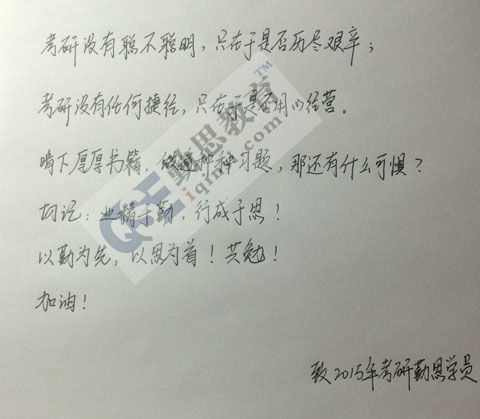 考研没有聪不聪明，只在于是否历尽艰辛；
考研没有任何捷径，只在于是否用心经营。
啃下厚厚书籍，做遍种种习题，那还有什么可惧？
切记：业精于勤，行成于思！
以勤为先，以思为首！共勉！
加油！
致2015年考研勤思学员
勤思教育™
iqinsi.com